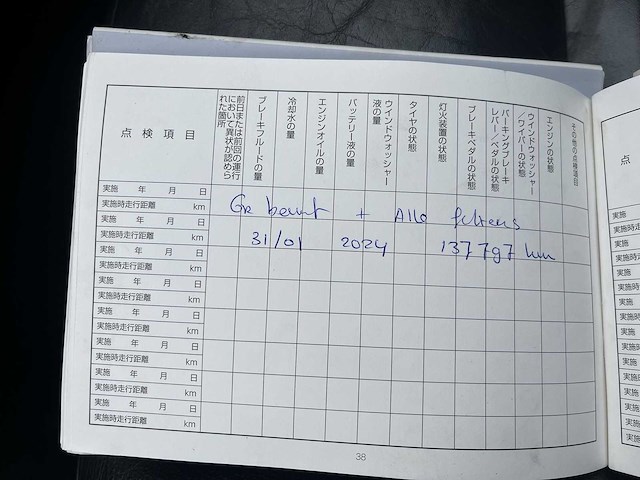 点検項目
前日または前回の運行において異状が認められた箇所
ブレーキフルードの量
冷却水の量
エンジンオイルの量
バッテリー液の量
ウインドウォッシャー液の量
タイヤの状態
灯火装置の状態
ブレーキペダルの状態
パーキングブレーキレバー/ペダルの状態
ウインドウォッシャー/ワイパーの状態
エンジンの状態
その他の点検項目
実施 年 月 日
実施時走行距離 km
+ Alle filters
実施 年 月 日
実施時走行距離 km
31/01 2024 137797 km
実施 年 月 日
実施時走行距離 km
実施 年 月 日
実施時走行距離 km
実施 年 月 日
実施時走行距離 km
実施 年 月 日
実施時走行距離 km
実施 年 月 日
実施時走行距離 km
実施 年 月 日
実施時走行距離 km
38
点
実施
実施時
実施
実施時
実施
実施時
実施
実施時
実施
実施時
実施
実施時
実施
実施時
実施
実施時